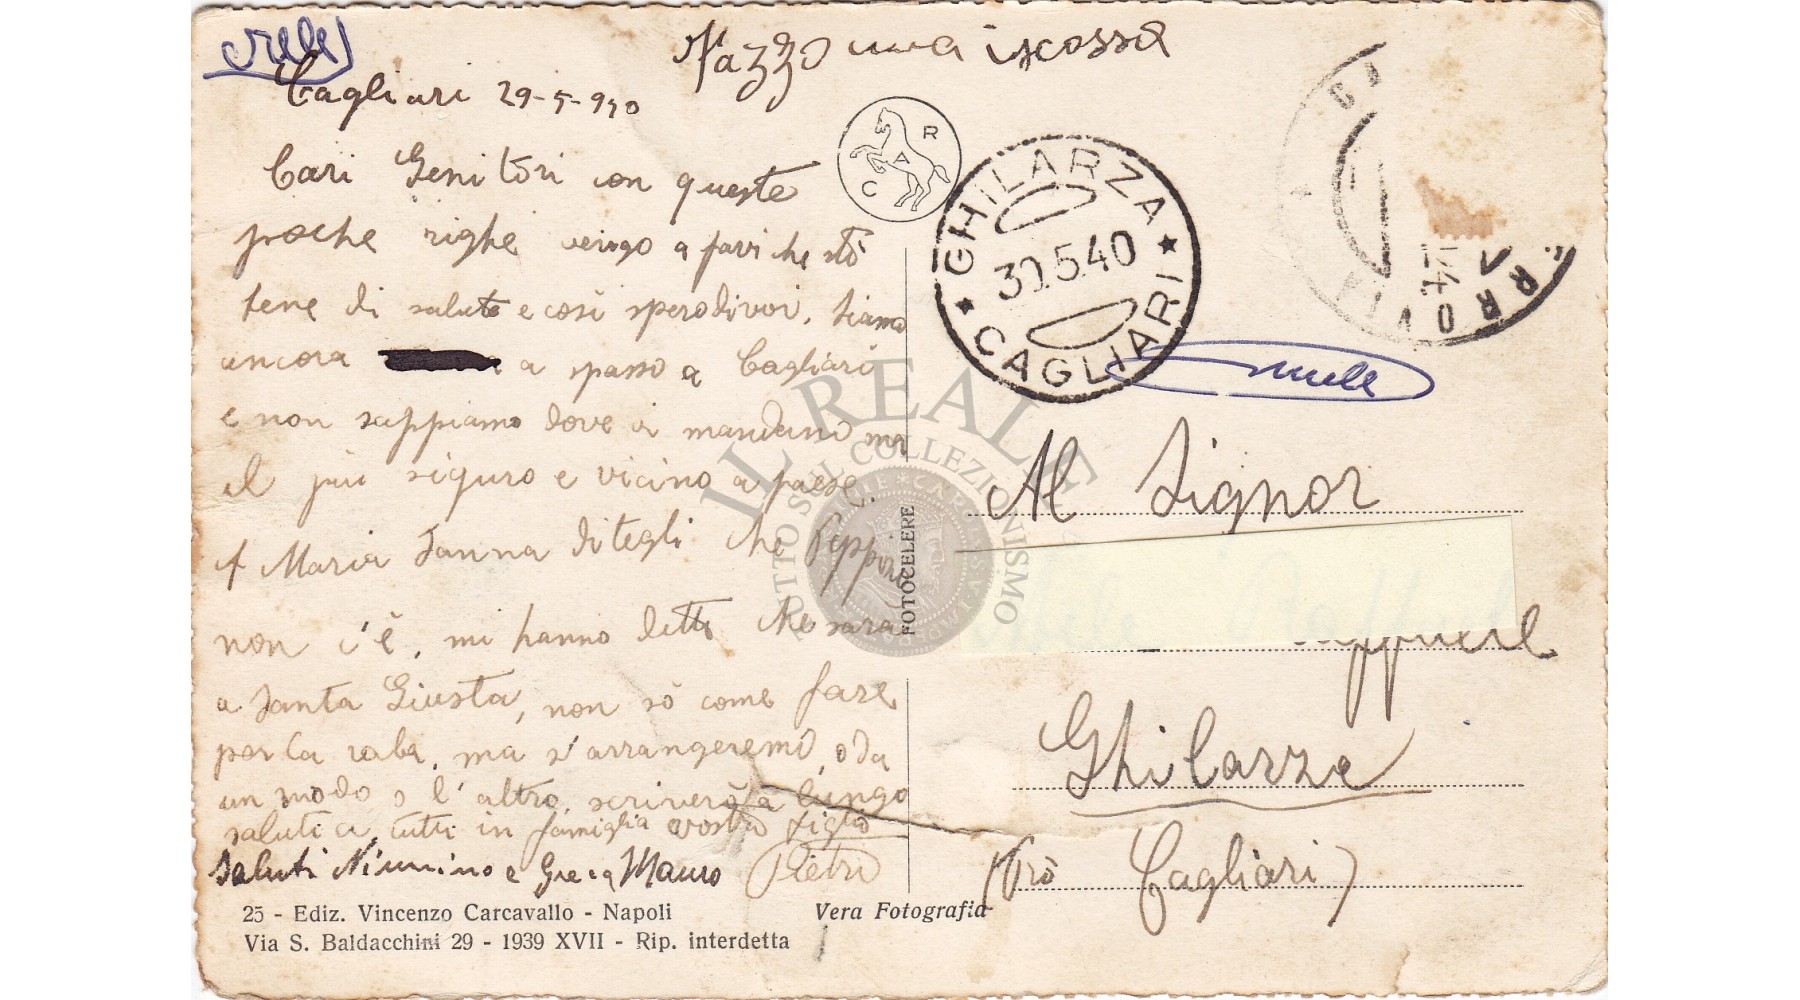 Cagliari 29-5-940
una iscossa
Cari Genitori con queste
poche righe vengo a farvi che stò
bene di salute e così spero di voi. Siamo
ancora a spasso a Cagliari
e non sappiamo dove ci mandano ma
al più siguro e vicino a paese.
A Maria Janna ditegli che Peppino
non c'è, mi hanno detto che sarà
a Santa Giusta, non sò come fare
per la roba, ma s'arrangeremo, o da
un modo o l'altro, scriverò a lungo
saluti a tutti in famiglia vostro figlio
Pietro
Saluti Nimmino e Greca Mauro
25 - Ediz. Vincenzo Carcavallo - Napoli
Via S. Baldacchini 29 - 1939 XVII - Rip. interdetta
Vera Fotografia
FOTOCELERE
A R C
GHILARZA
30.5.40
CAGLIARI
Al Signor
Ghilarza
(Prò Cagliari)
IL REALE
TUTTO SUL COLLEZIONISMO